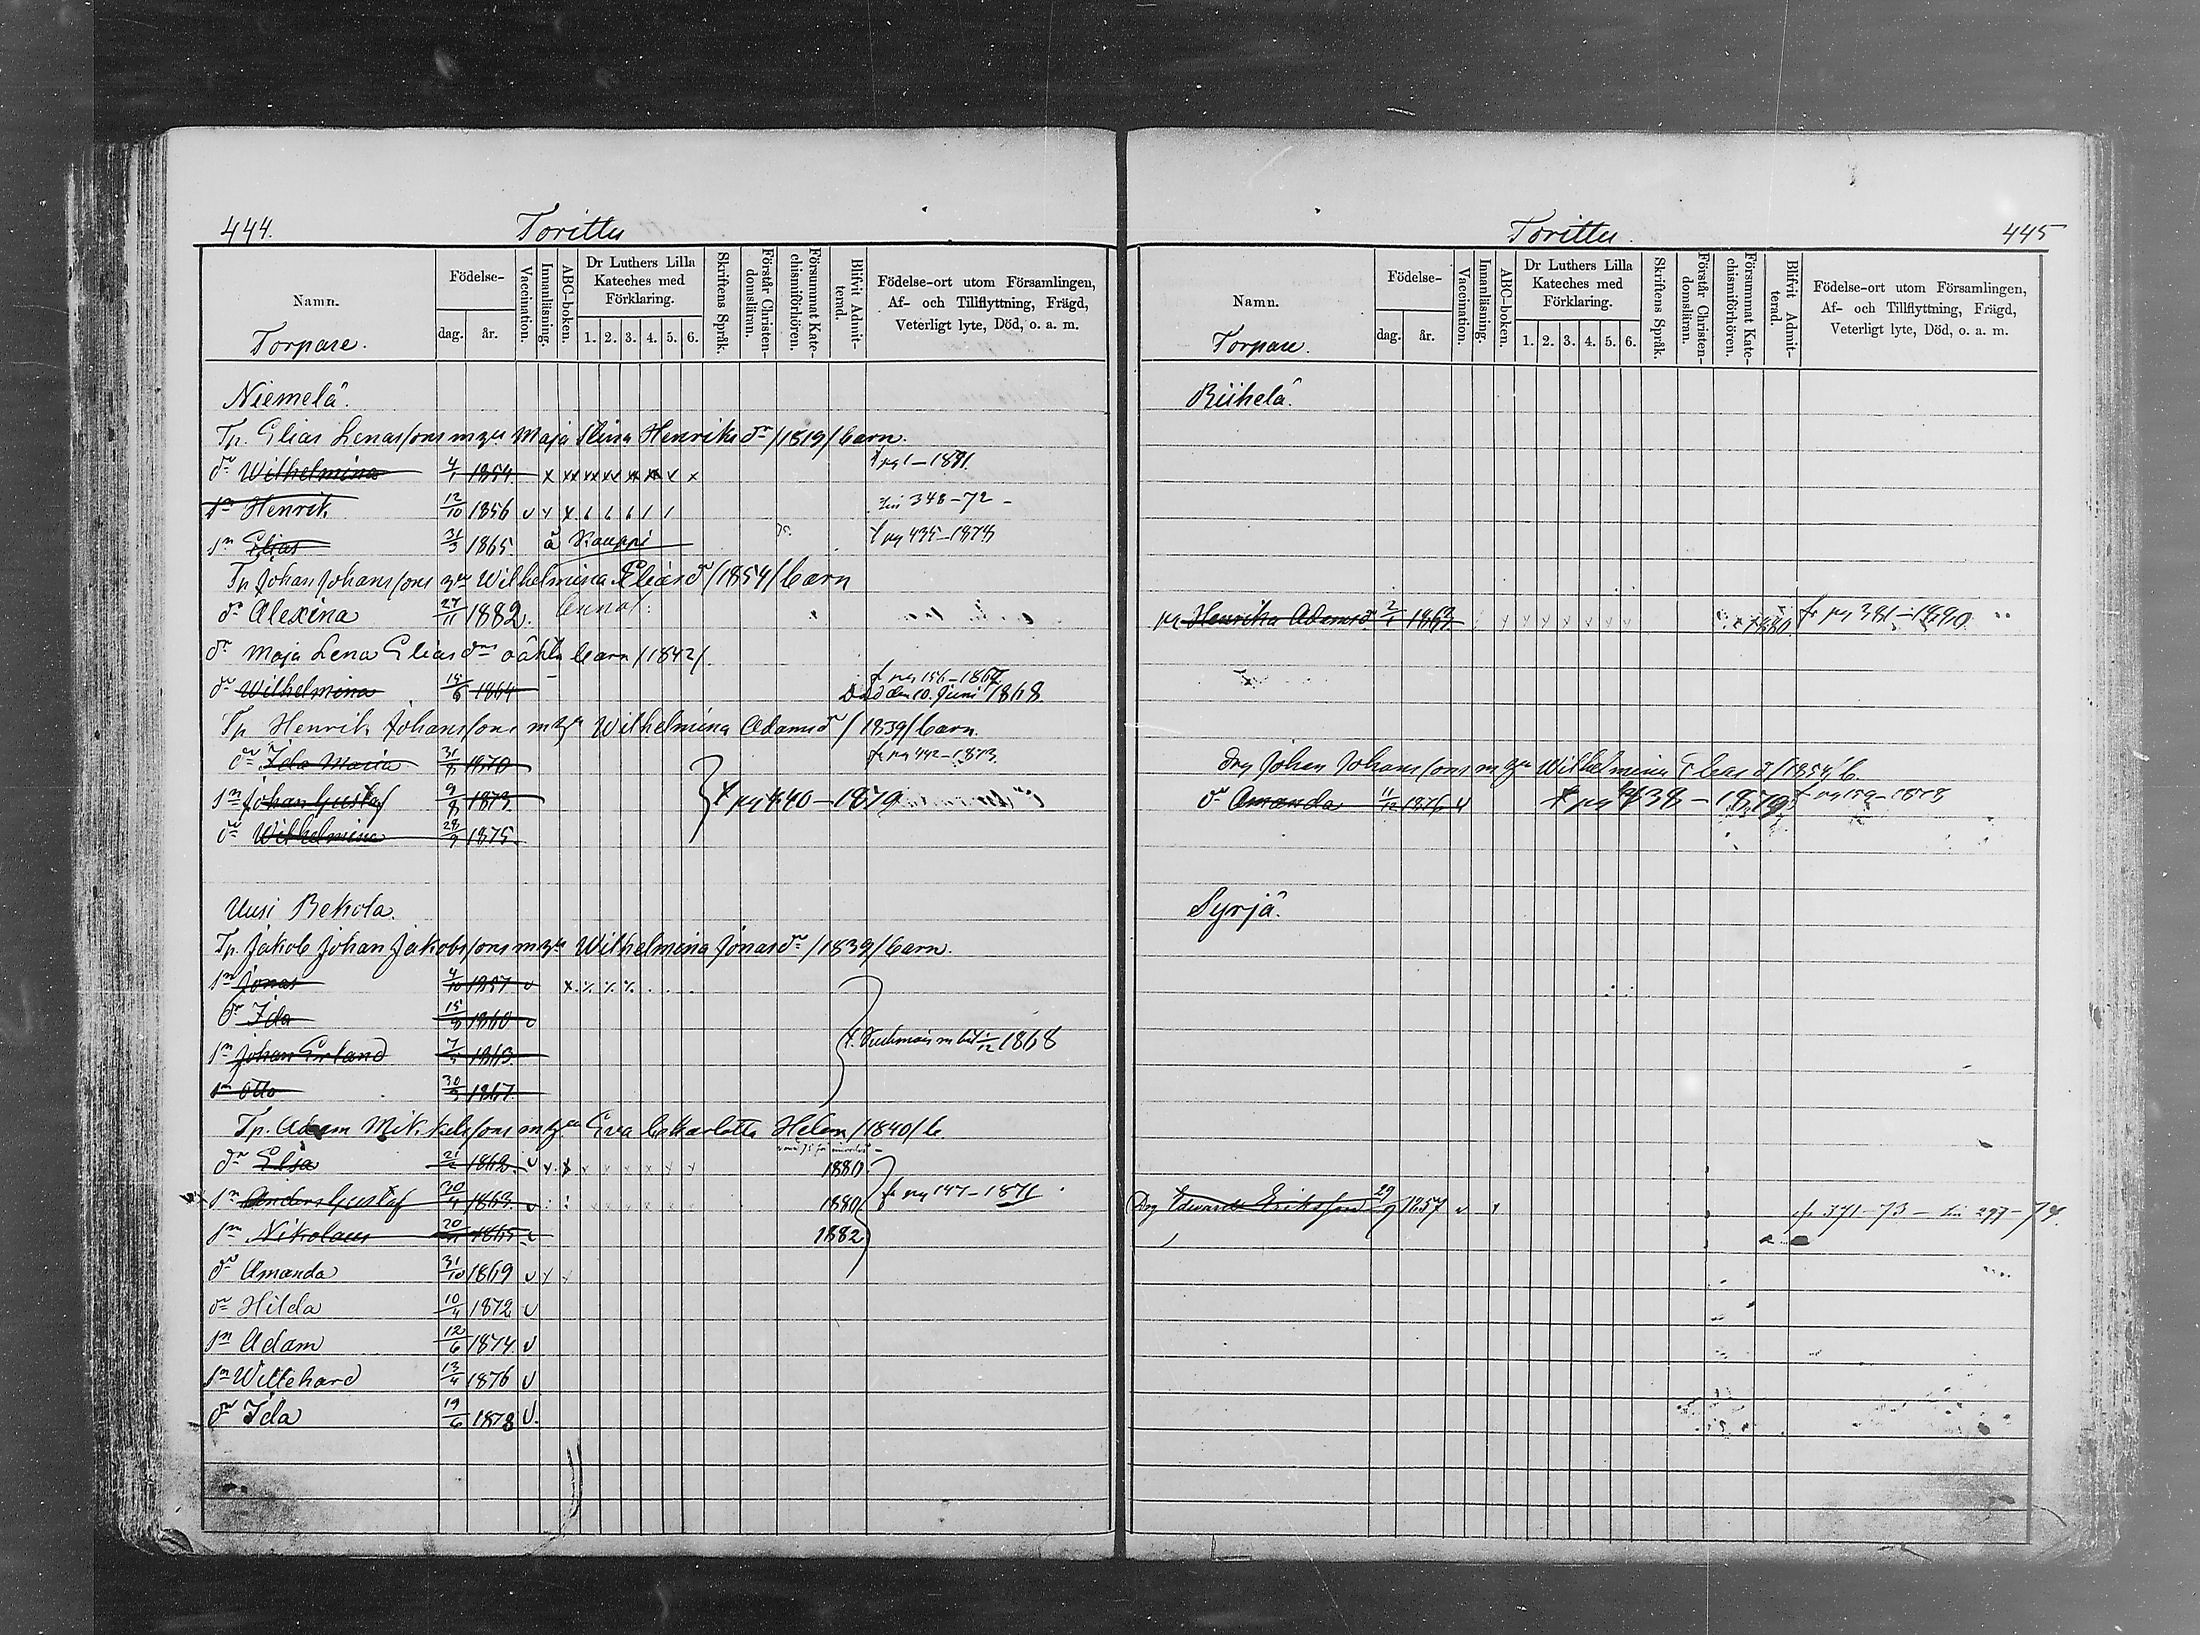 444.
Torittu
Namn.
Torpare.
Födelse-
dag. år.
Vaccination.
Innanläsning.
ABC-boken.
Dr Luthers Lilla Kateches med Förklaring.
1. 2. 3. 4. 5. 6.
Skriftens Språk.
Förstår Christendomsläran.
Försummat Katechismiförhören.
Blifvit Admitterad.
Födelse-ort utom Församlingen, Af- och Tillflyttning, Frägd, Veterligt lyte, Död, o. a. m.
Niemelä.
Tp. Elias Henriks dr /1819/ barn.
dr Wilhelmina 4/1 1854
sn Henrik 12/10 1856 348-72
sn Elias 31/3 1865 å Kauppi pg 435-1878
Tp Johan Johanssons Wilhelmina Eliasdr /1854/ barn
dr Alexina 27/11 1882
dr Maja Lena Elias drs oäkta barn /1842/.
dr Wilhelmina 15/6 1864 Död den 10. Juni 1868.
Tp Henrik Johanssons m h Wilhelmina Adamsdr /1839/ barn.
dr Ida Maria 31/8 1870 fr pg 442-1873.
sn Johan Gustaf 9/8 1873 pg 440-1879
dr Wilhelmina 28/9 1875.
Uusi Rekola.
Tp. Jakob Johan Jakobssons Wilhelmina Jonasdr /1839/ barn.
sn Jonas 4/10 1857
dr Ida 15/8 1860
sn Johan Erland 1863 1868
sn Otto 30/9 1867
Tp. Adam Mikkelssons Eva Charlotta Helen /1840/ b.
dr Elsa 1862 1880
sn Anders Gustaf 1863 1880 fr pg 147-1871
sn Nikolaus 1865 1882
dr Amanda 31/10 1869
dr Hilda 10/4 1872
sn Adam 12/6 1874
sn Willehard 13/4 1876
dr Ida 19/6 1878
Torittu.
445
Namn.
Torpare.
Födelse-
dag. år.
Vaccination.
Innanläsning.
ABC-boken.
Dr Luthers Lilla Kateches med Förklaring.
1. 2. 3. 4. 5. 6.
Skriftens Språk.
Förstår Christendomsläran.
Försummat Katechismiförhören.
Blifvit Admitterad.
Födelse-ort utom Församlingen, Af- och Tillflyttning, Frägd, Veterligt lyte, Död, o. a. m.
Riihelä.
Henrika Adamsdr 2/1 1863 1880 fr pg 381-1890
Drg Johan Johanssons Wilhelmina Eliasd /1854/ b.
dr Amanda 11/12 1876 pg 438-1879
Syrjä.
Drg Edvard Eriksson 29/9 1857 fr 371-73